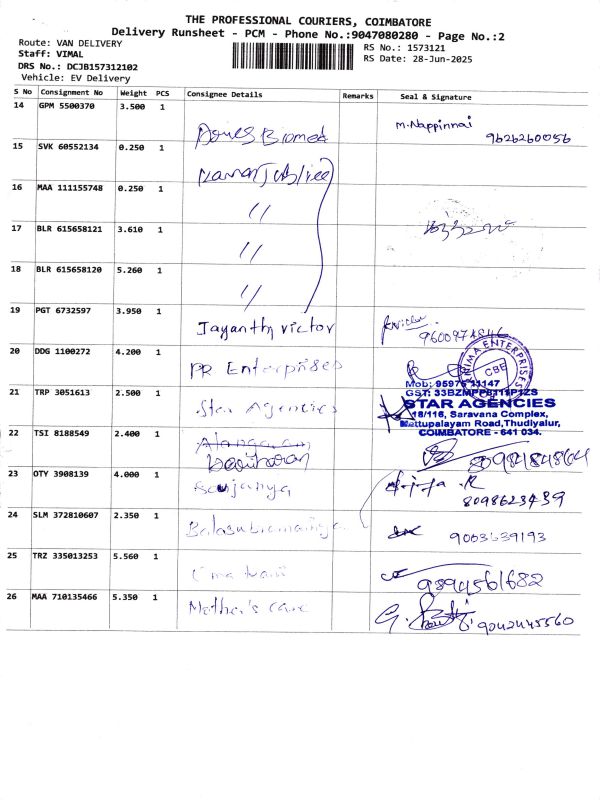 THE PROFESSIONAL COURIERS, COIMBATORE
Delivery Runsheet - PCM - Phone No.:9047080280 - Page No.:2
Route: VAN DELIVERY
Staff: VIMAL
RS No.: 1573121
DRS No.: DCJB157312102
RS Date: 28-Jun-2025
Vehicle: EV Delivery
S No Consignment No Weight PCS Consignee Details Remarks Seal & Signature
14 GPM 5500370 3.500 1 Biomed M.Nappinnai 9626260056
15 SVK 60552134 0.250 1
16 MAA 111155748 0.250 1 //
17 BLR 615658121 3.610 1 //
18 BLR 615658120 5.260 1 //
19 PGT 6732597 3.950 1 Jayanthy victor
20 DDG 1100272 4.200 1 PR Enterprises
NIMA ENTERPRISES
CBE
21 TRP 3051613 2.500 1 Star Agencies
STAR AGENCIES
18/116, Saravana Complex,
Mettupalayam Road,Thudiyalur,
COIMBATORE - 641 034.
22 TSI 8188549 2.400 1
23 OTY 3908139 4.000 1 Soujanya 8098623439
24 SLM 372810607 2.350 1 9003639193
25 TRZ 335013253 5.560 1 9894561682
26 MAA 710135466 5.350 1 Mother's care 9042445560